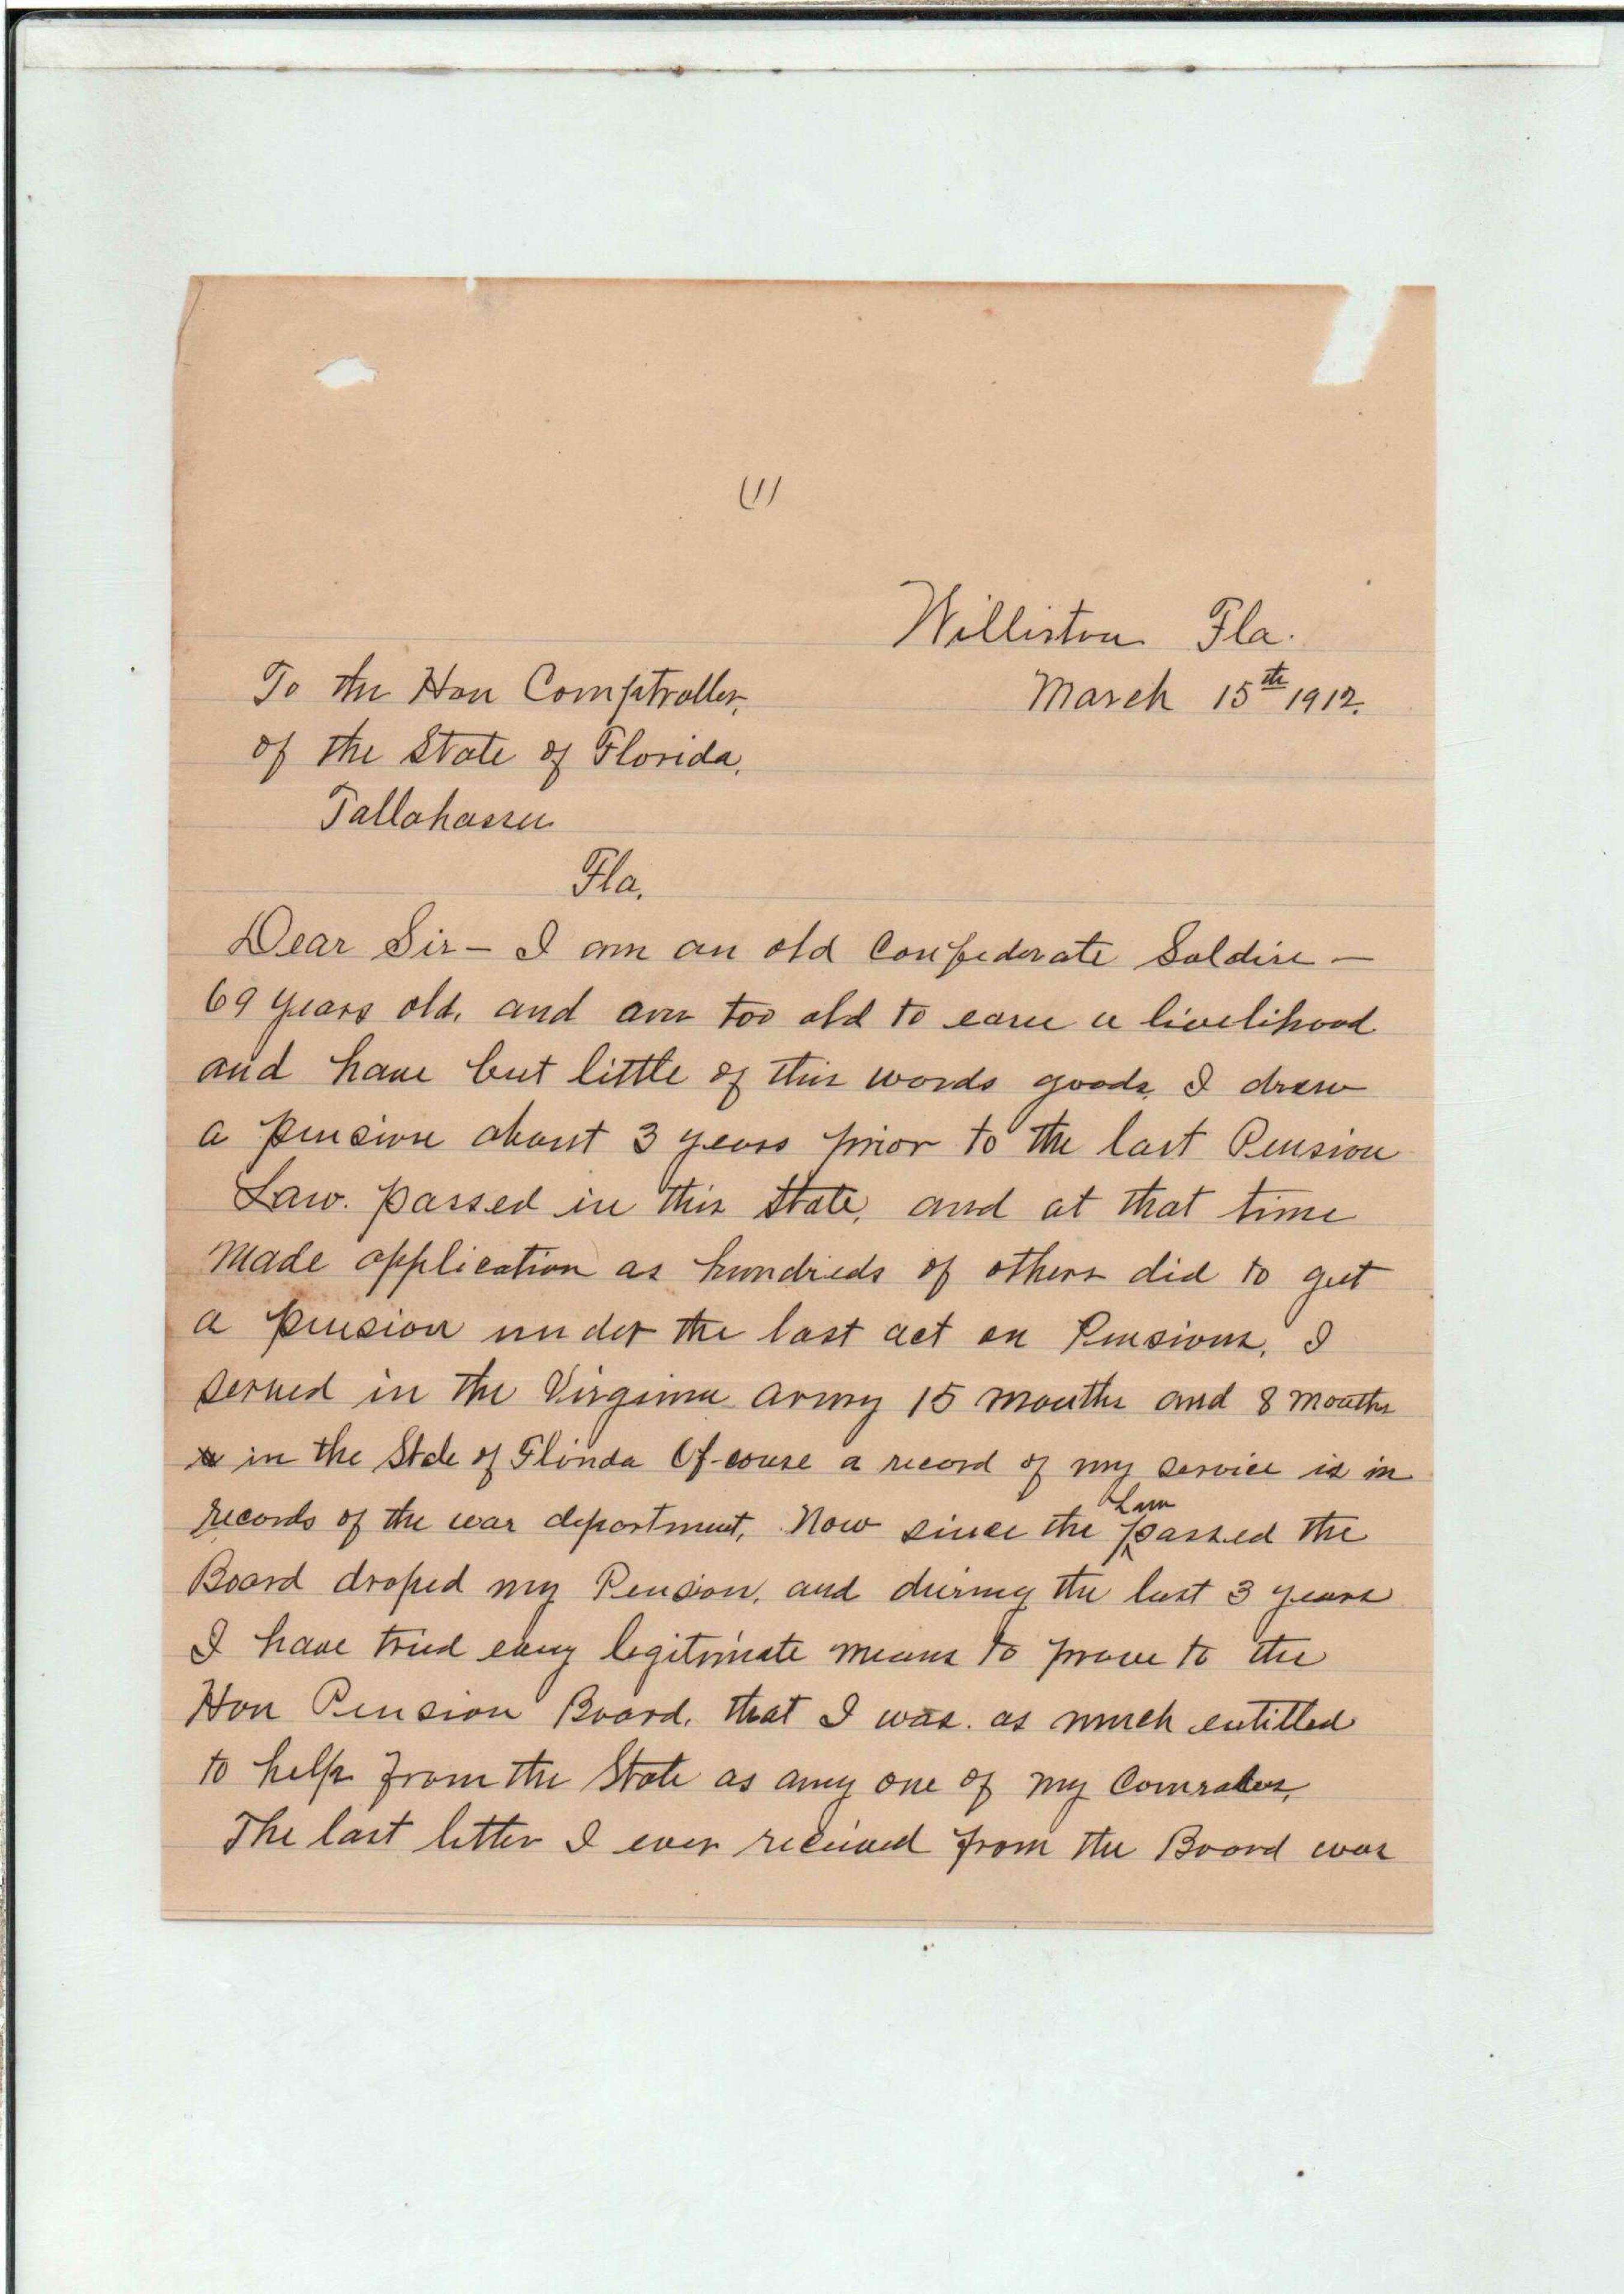 (1)
Williston Fla.
To the Hon Comptroller,
March 15th 1912.
of the State of Florida,
Tallahassee
Fla.
Dear Sir - I am an old Confederate Soldire -
69 years old, and am too old to earn a livelihood
and have but little of this words goods, I drew
a pension about 3 years prior to the last Pension
Law. passed in this State, and at that time
made application as hundreds of others did to get
a pension under the last act on Pensions, I
served in the Virginia army 15 months and 8 months
in the State of Florida Of-couse a record of my service is in
records of the war department, Now since the Law passed the
Board droped my Pension, and during the last 3 years
I have tried every legitimate means to prove to the
Hon Pension Board, that I was. as much entitled
to help from the State as any one of my Comrades,
The last letter I ever received from the Board was